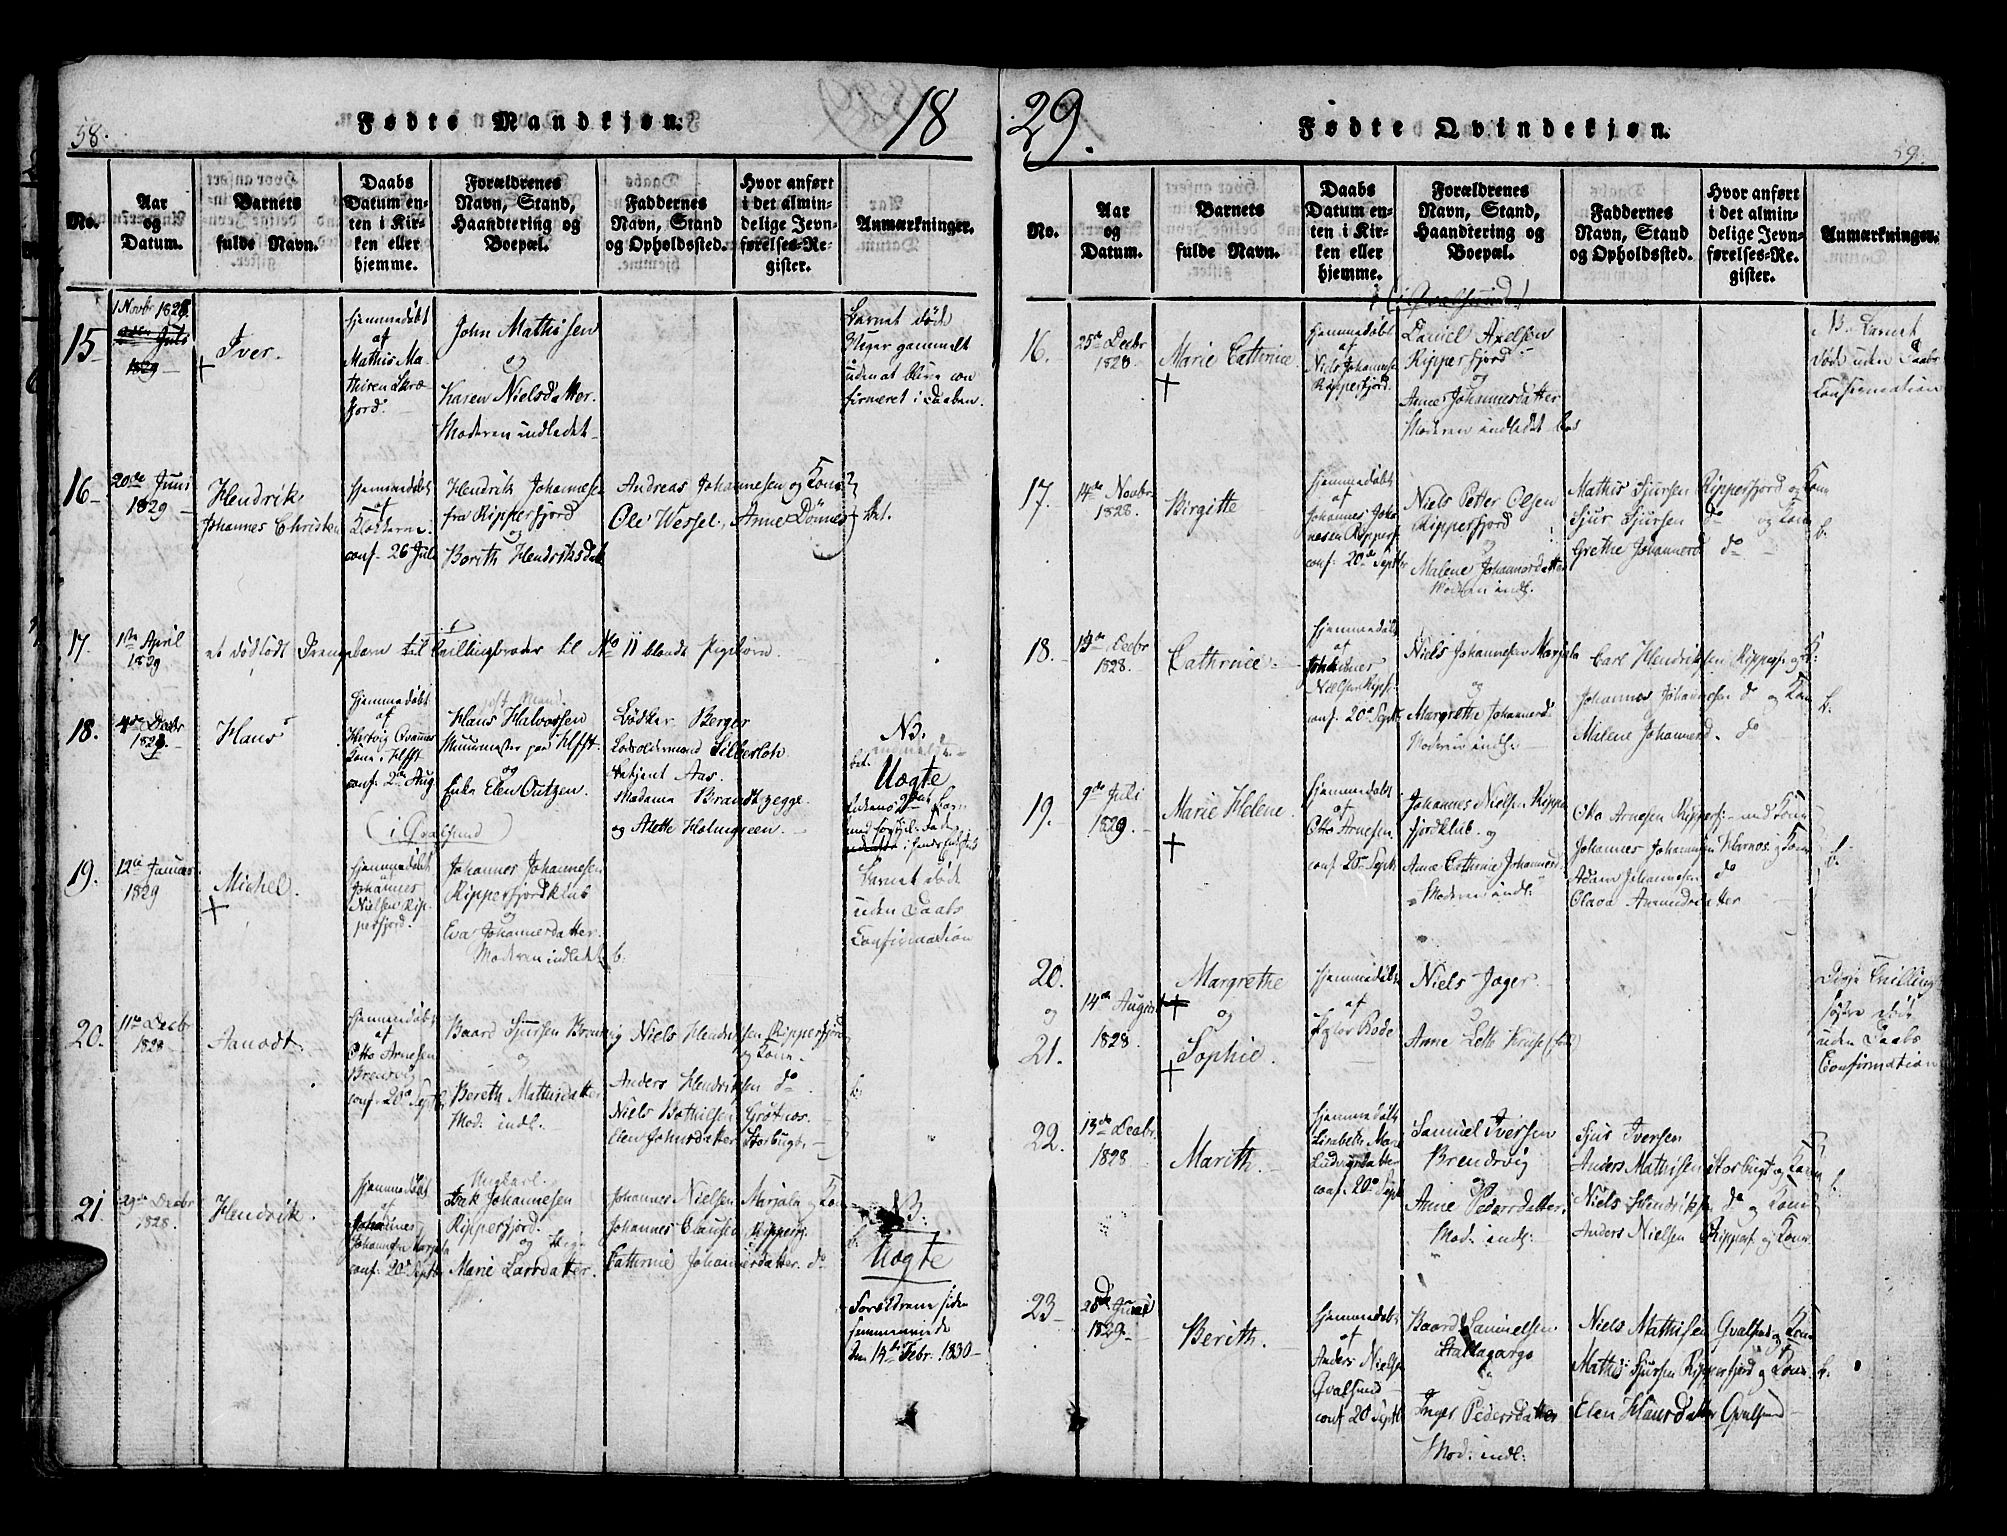 58.
Fødte Mandkjøn.
18
No.
Aar
og
Datum.
Barnets
fulde Navn.
Daabs
Datum en-
ten i Kir-
ken eller
hjemme.
Forældrenes
Navn, Stand,
Haandtering og
Boepæl.
Faddernes
Navn, Stand
og Opholdssted.
Hvor anført
i det almin-
delige Jevn-
førelses-Re-
gister.
Anmærkninger.
15
1 Novbr 1828.
Juli
1829
Iver.
hjemmedøbt
af
Mathis Ma-
thisen
fjord.
John Mathisen
og
Karen Nielsdatter.
Moderen indledet
Barnet døde
Uger gammelt
uden at blive con
firmeret i Daaben.
16
20de Juni
1829
Hendrik
Johannes Christian
hjemmedøbt
af
Klokkeren.
conf. 26 Juli
Hendrik Johannesen
fra Ripperfjord
og
Berith Hendriksdatter
Andreas Johannesen og Kone
Ole Wessel, Anne Dönnes
17.
1ste April
1829
et dödfödt Drengebarn til Tvillingbroder til No 11 blandt Pigebörn.
18.
4de Decbr
1828.
Hans
hjemmedøbt
af
conf. 2de Aug
Hans Halvorsen
Muurmester paa Hfft.
og
Enke Elen Outzen.
Bödker Berger
Lodsoldermand Silberlow
Betjent Aas.
Madame Brandtzegge
og Alette Holmgreen.
NB.
Uægte
(i Qvalsund)
19.
12te Januar
1829
Michel.
hjemmedøbt
af
Johannes
Nielsen Rip-
perfjord.
Johannes Johannesen
Ripperfjordklub
og
Eva Johannesdatter.
Moderen indledet
b.
Barnet døde
uden Daabs
Confirmation
20.
11te Decbr
1828
Aanodt.
hjemmedøbt
af
Otto Arnesen
Brenvig
conf. 20de Septbr
Baard Sjursen Brenvig
og
Bereth Mathisdatter
Mod. indl.
Niels Hendriksen Ripperfjord
og Kone.
Anders Hendriksen do
Niels Bothilsen Grötnos.
Elen Johnsdatter Storbugt.
b.
21
29de Decbr
1828.
Hendrik.
hjemmedøbt
af
Johannes
Johannesen Marjala
conf. 20de Septbr
Ungkarl.
Isak Johannesen
Ripperfjord.
og Pige
Marie Larsdatter.
Johannes Nielsen Marjala og Kone
Johannes Clausen Ripperfj.
Cathrine Johannesdatter. do
b.
NB.
Uægte
Forældrene siden
sammenviede
den 14de Febr. 1830
29.
Fødte Qvindekjøn.
59.
No.
Aar
og
Datum.
Barnets
fulde Navn.
Daabs
Datum en-
ten i Kir-
ken eller
hjemme.
Forældrenes
Navn, Stand,
Haandtering og
Boepæl.
Faddernes
Navn, Stand
og Opholdssted.
Hvor anført
i det almin-
delige Jevn-
førelses-Re-
gister.
Anmærkninger.
(i Qvalsund)
16.
25de Decbr
1828.
Marie Cathrine.
hjemmedøbt
af
Niels Johannesen
Ripperfjord.
Daniel Axelsen
Ripperfjord
og
Anne Johannesdatter
Moderen indledet
NB. Barnet
døde uden Daabs
Confirmation
17.
14de Novbr
1828.
Birgitte
hjemmedøbt
af
Johannes Joha-
nesen Ripperf.
conf. 20de Septbr
Niels Petter Olsen
Ripperfjord
og
Malene Johannesdatter
Moderen indl.
Mathis Sjursen Ripperfjord og Kone
Sjur Sjursen do og Kone
Grethe Johannesd do
b.
18.
13de Decbr
1828.
Cathrine.
hjemmedøbt
af
Johannes
Nielsen Ripf.
conf. 20de Septb.
Niels Johannesen Marjala
og
Margrethe Johannesd.
Moderen indl.
Carl Hendriksen Ripperf. og K:
Johannes Johannesen do og Kone
Malene Johannesd. do
b.
19.
9de Juli
1829.
Marie Helene.
hjemmedøbt
af
Otto Arnesen
conf. 20de Septb.
Johannes Nielsen Ripper
fjordklub. og
Anne Cathrine Johannesd.
Moderen indl.
Otto Arnesen Ripperf. med Kone
Johannes Johannesen Klarnos og Kone
Adam Johannesen do
Olava Amundsdatter
b.
20.
og
21.
14de August
1828.
Margrethe
og
Sophie.
hjemmedøbt
af
Rode
Niels Jager.
og
Anne Leth Kruse
Disse Tvilling
søstre døde
uden Daabs
Confirmation
22.
13de Decbr.
1828
Marith.
hjemmedøbt
Lisabeth Mar.
Ludvigsdatter
conf. 20de Septb
Samuel Iversen
Brendvig
og
Anne Pedersdatter.
Mod. indl.
Sjur Iversen
Anders Mathisen Storbugt og Kone
Niels Hendriksen do og Kone
Anders Nielsen Ripperf. og Kone
b.
23
28de Juni
1829.
Berith.
hjemmedøbt
af
Anders Nielsen
Qvalsund
conf. 20 Septbr
Baard Samuelsen
Stallagargo
Inger Pedersdatter
Mod. indl.
Niels Mathisen Qvalsund og Kone
Mathis Sjursen Ripperfjord og Kone.
Elen Hansdatter Qvalsund
b.